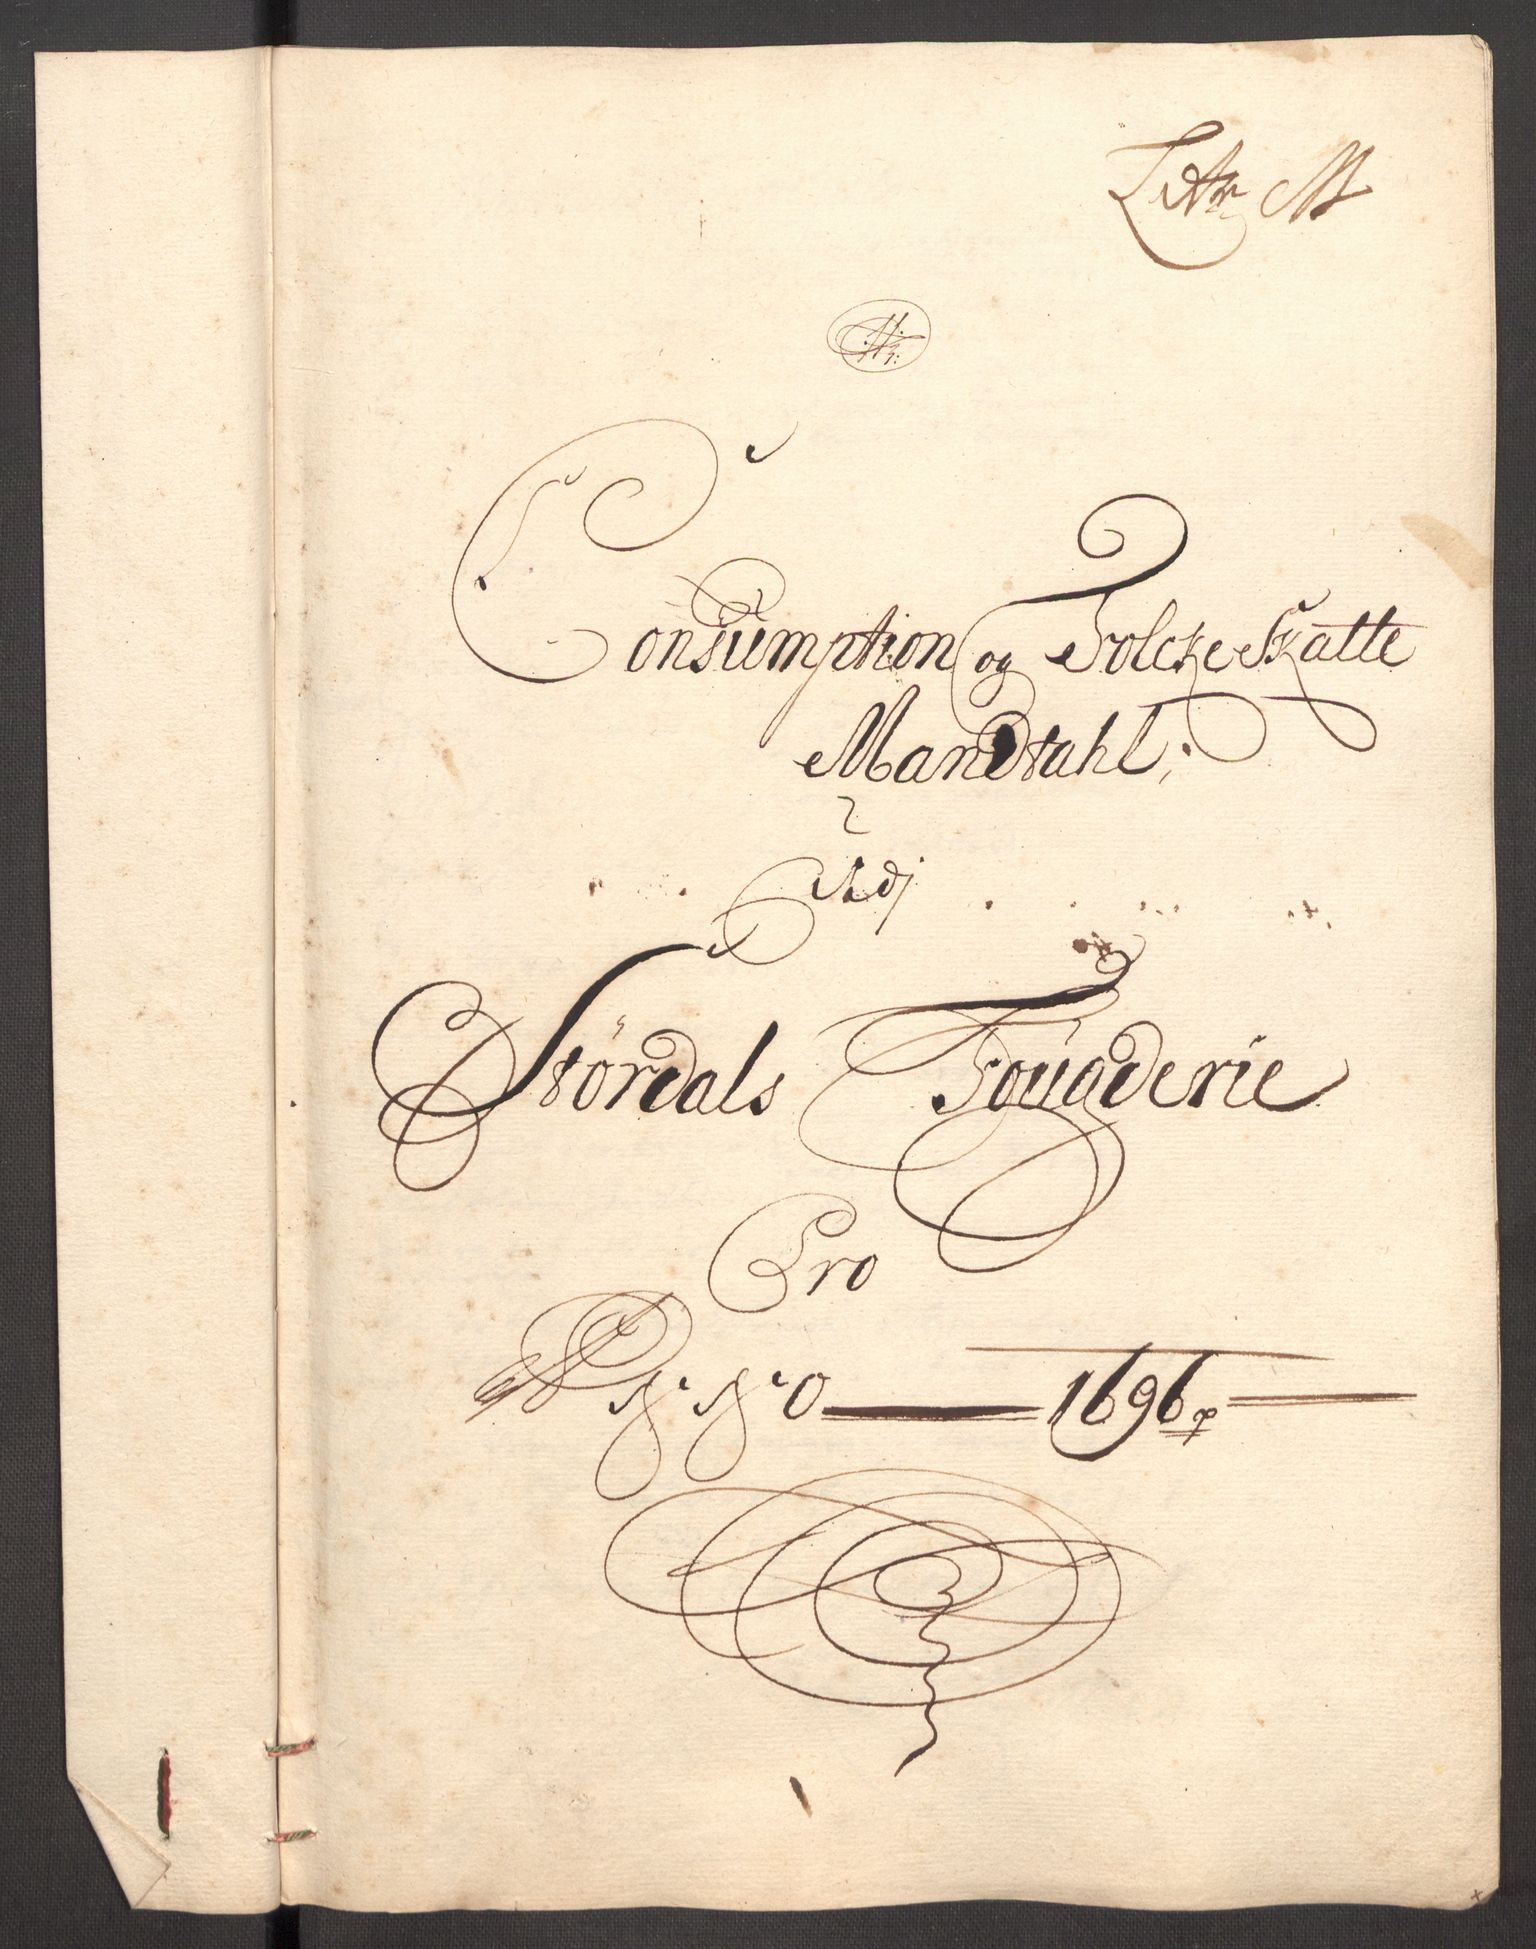 Litr M
Consumption og Folcke Skatte
Mandtahl;
Udj
Størdals Fougderie
Pro
Anno 1696